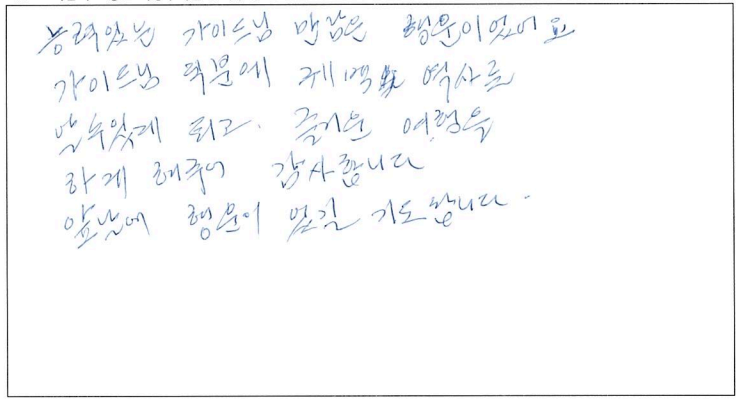 능력있는 가이드님 만남은 행운이었어요
가이드님 덕분에 역사를
알 수 있게 되고. 즐거운 여행을
하게 해주어 감사합니다
앞날에 행운이 있길 기도합니다.